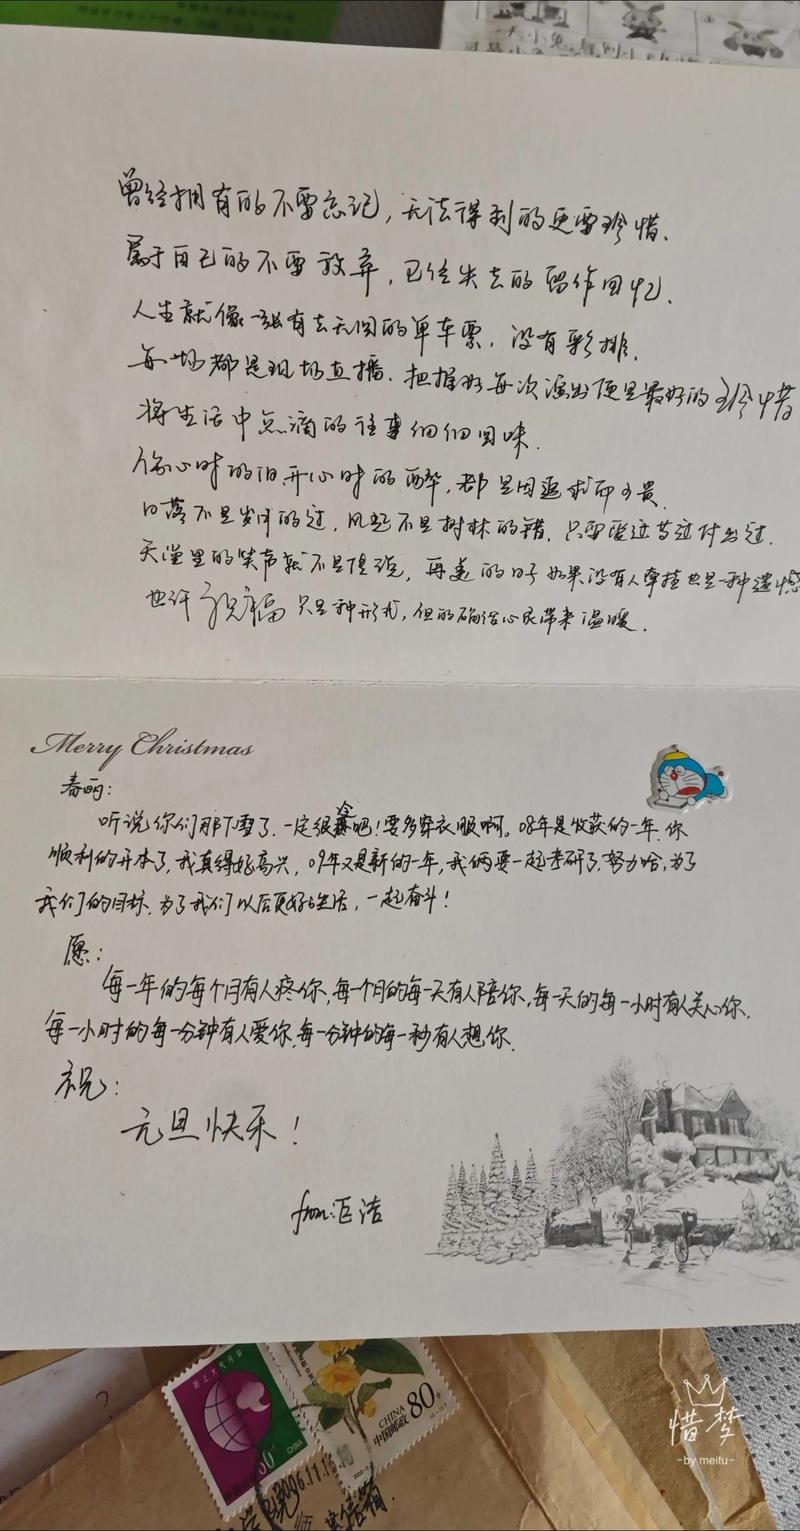 曾经拥有的不要忘记，无法得到的更要珍惜、
属于自己的不要放弃，已经失去的留作回忆、
人生就像一张有去无回的单车票，没有彩排、
每一场都是现场直播、把握好每次演出便是最好的珍惜
将生活中点滴的往事细细回味、
伤心时的泪、开心时的醉，都是因追求而可贵、
日落不是岁月的过，风起不是树林的错、只要爱过等过付出过、
天堂里的笑声就不是传说，再美的日子如果没有人牵挂也是一种遗憾
也许祝福只是种形式，但的确给心灵带来温暖、
Merry Christmas
春丽：
听说你们那下雪了、一定很冷吧！要多穿衣服啊。08年是收获的一年、你
顺利的开本了，我真得好高兴，09年又是新的一年，我俩要一起考研了、努力哈，为了
我们的目标、为了我们以后更好的生活，一起奋斗！
愿：
每一年的每个月有人疼你，每一个月的每一天有人陪你，每一天的每一小时有人关心你、
每一小时的每一分钟有人爱你，每一分钟的每一秒有人想你、
祝：
元旦快乐！
from：洁
CHINA
CHINA
中国邮政
80
惜梦
-by meitu-